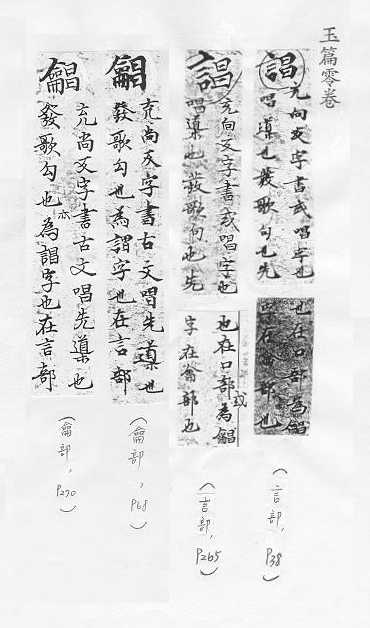 玉篇零卷
誯
充向反字書或唱字也
唱導也發歌句也先
也在口部為
字在龠部也
(言部, P38)
誯
充向反字書或唱字也
唱導也發歌句也先
也在口部或為
字在龠部也
(言部, P265)
充尚反字書古文唱先導也
發歌句也為誯字也在言部
(龠部, P68)
充尚反字書古文唱先導也
發歌句也亦為誯字也在言部
(龠部, P270)